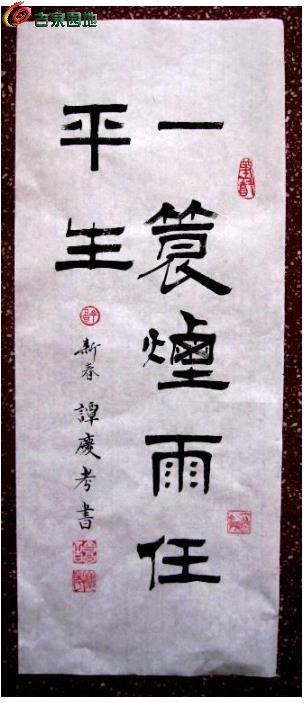 吉泉园地
一蓑煙雨任
平生
新春 譚慶考書